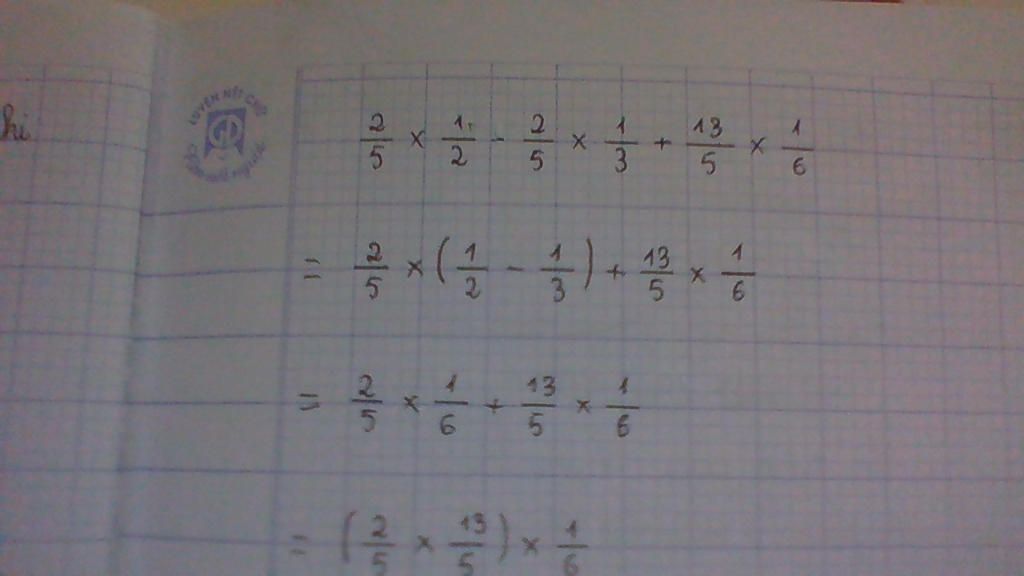 hi
LUYỆN NÉT CHỮ
2/5 × 1/2 - 2/5 × 1/3 + 13/5 × 1/6
= 2/5 × (1/2 - 1/3) + 13/5 × 1/6
= 2/5 × 1/6 + 13/5 × 1/6
= (2/5 × 13/5) × 1/6